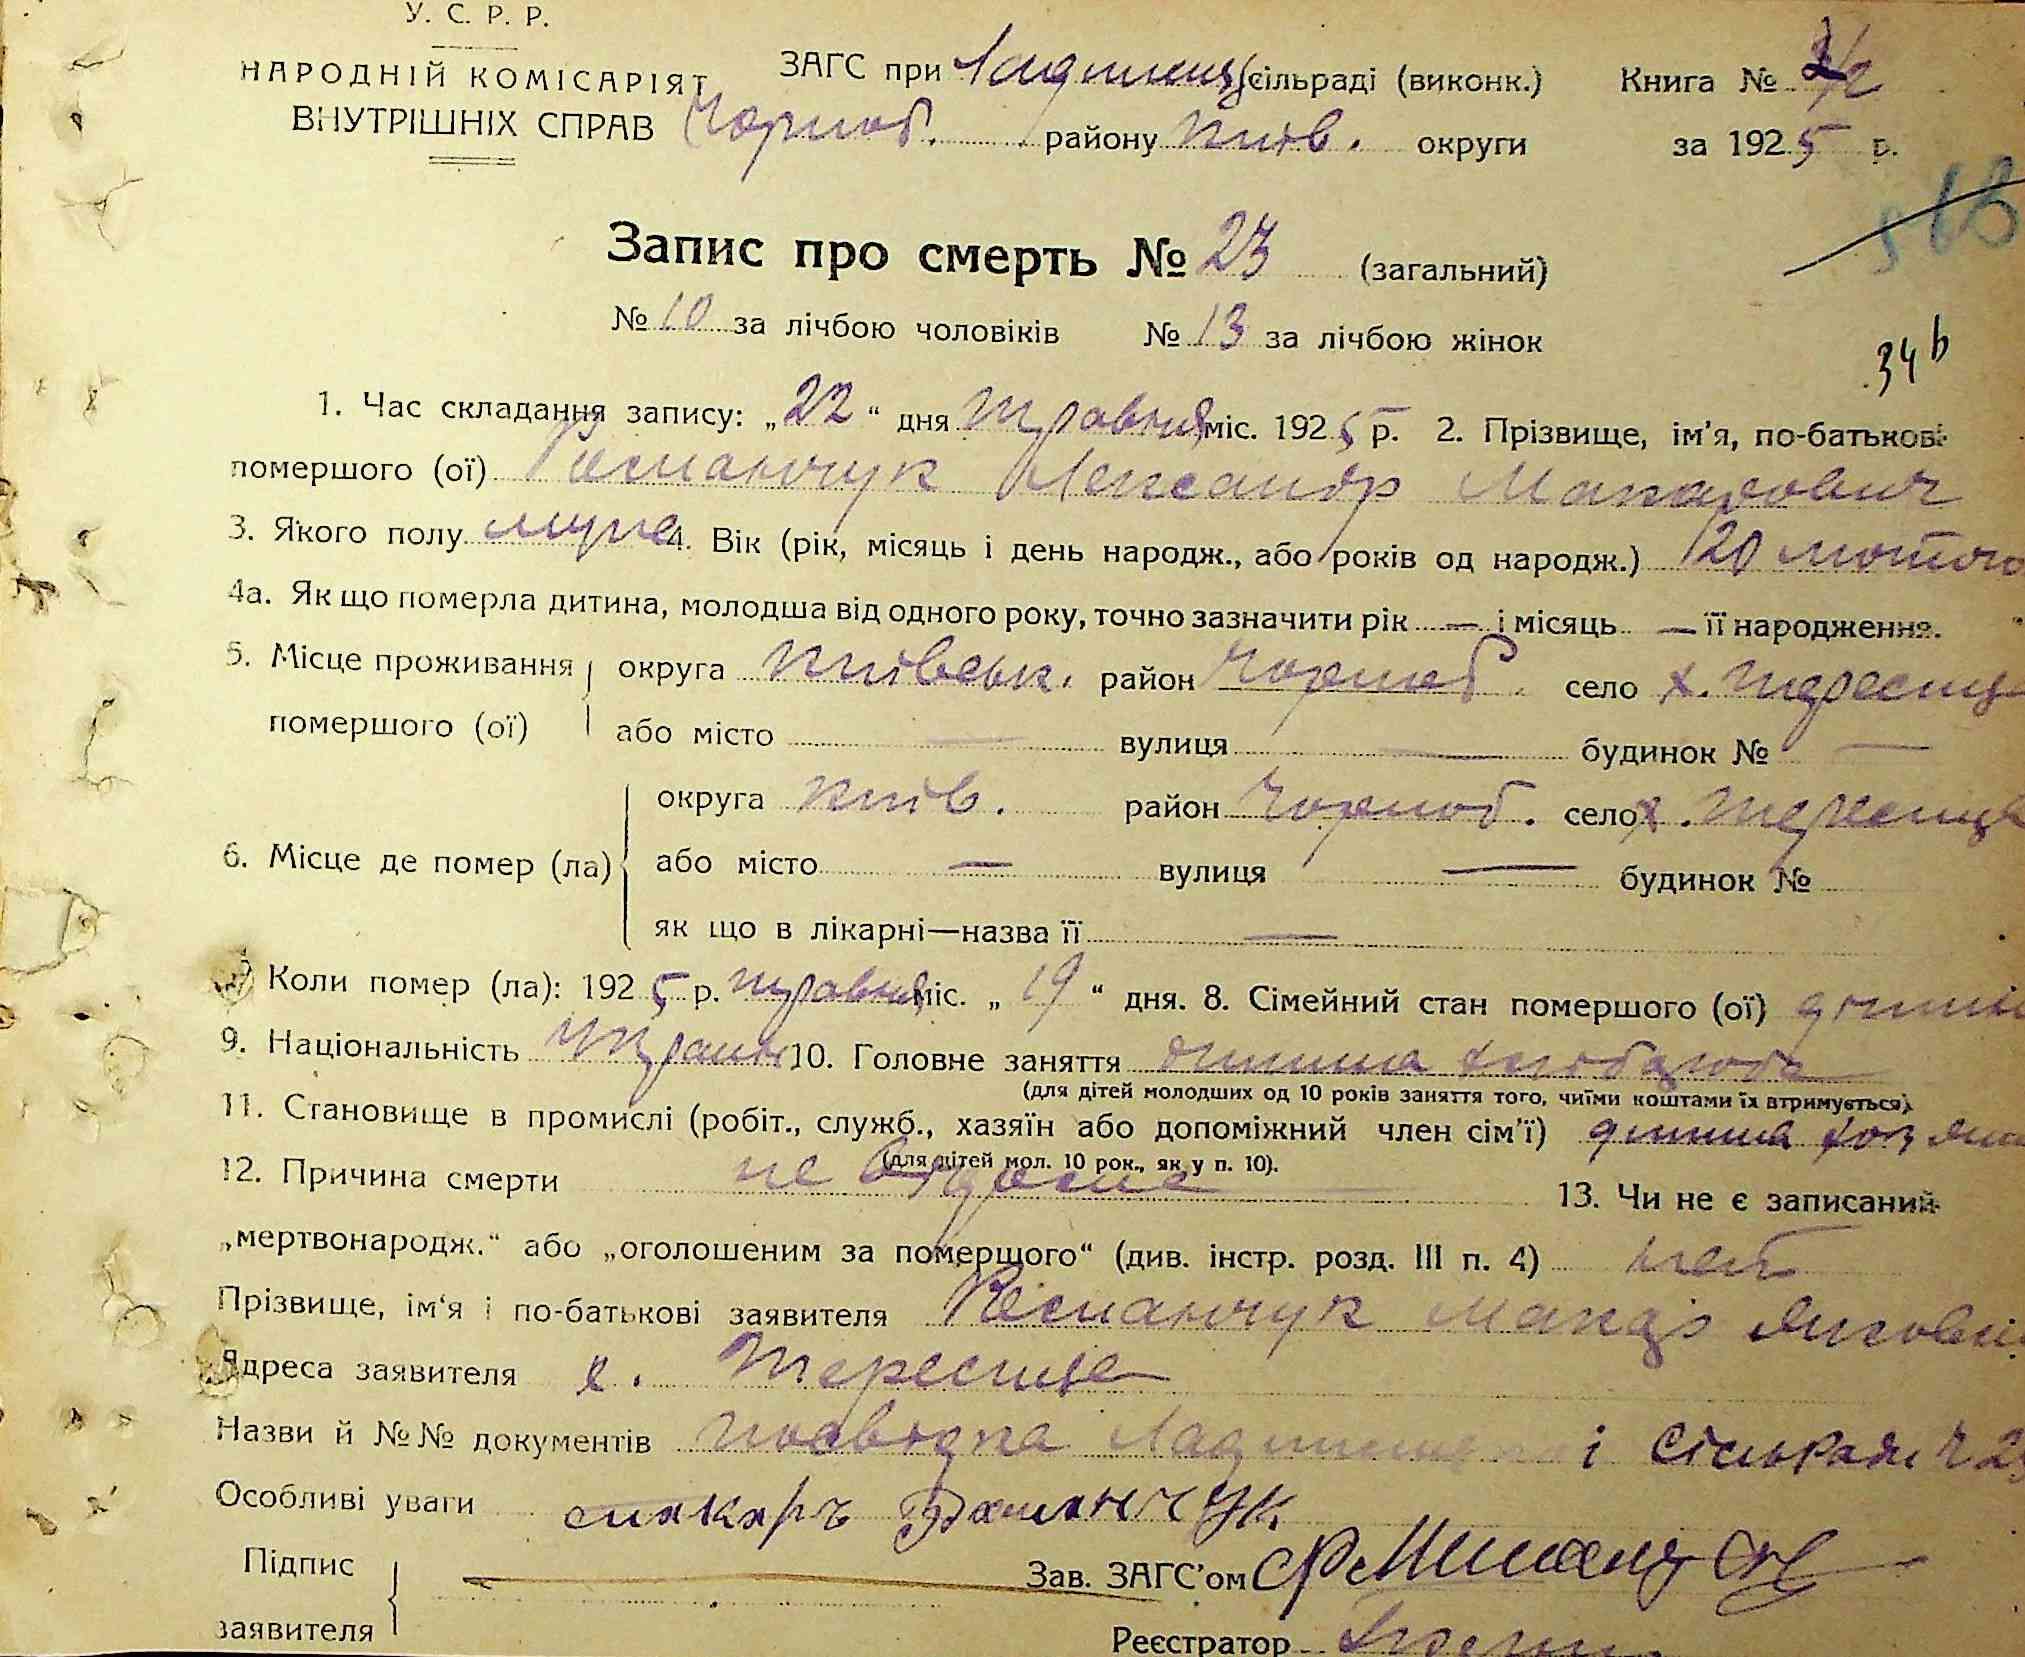 У. С. Р. Р.
НАРОДНІЙ КОМІСАРІЯТ
ВНУТРІШНІХ СПРАВ
ЗАГС при Ладижиц сільраді (виконк.)
Чорноб. району Київ. округи
Книга №
за 1925 р.
Запис про смерть № 23 (загальний)
№ 10 за лічбою чоловіків № 13 за лічбою жінок
34
1. Час складання запису: „22“ дня травня міс. 1925 р. 2. Прізвище, ім’я, по-батькові
помершого (ої) Романчук Александр Макарович
3. Якого полу муже 4. Вік (рік, місяць і день народж., або років од народж.) 20 лютого
4а. Як що померла дитина, молодша від одного року, точно зазначити рік — і місяць — її народження.
5. Місце проживання помершого (ої) округа Київськ. район Чорноб. село х. Тересиц
або місто — вулиця — будинок № —
6. Місце де помер (ла) округа Київ. район Чорноб. село х. Тересиць
або місто — вулиця — будинок №
як що в лікарні—назва її —
Коли помер (ла): 1925 р. травня міс. „19“ дня. 8. Сімейний стан помершого (ої)
9. Національність Україн 10. Головне заняття дитина хлібороба
(для дітей молодших од 10 років заняття того, чиїми коштами їх втримується).
11. Становище в промислі (робіт., служб., хазяїн або допоміжний член сім’ї) дитина хозяїна
(для дітей мол. 10 рок., як у п. 10).
12. Причина смерти не 13. Чи не є записаний
„мертвонародж.“ або „оголошеним за помершого“ (див. інстр. розд. III п. 4) нет
Прізвище, ім‘я і по-батькові заявителя Романчук Макар
Адреса заявителя х. Тересице
Назви й №№ документів посвідка і сільради
Особливі уваги макаръ Романчук.
Підпис
заявителя
Зав. ЗАГС’ом
Реєстратор